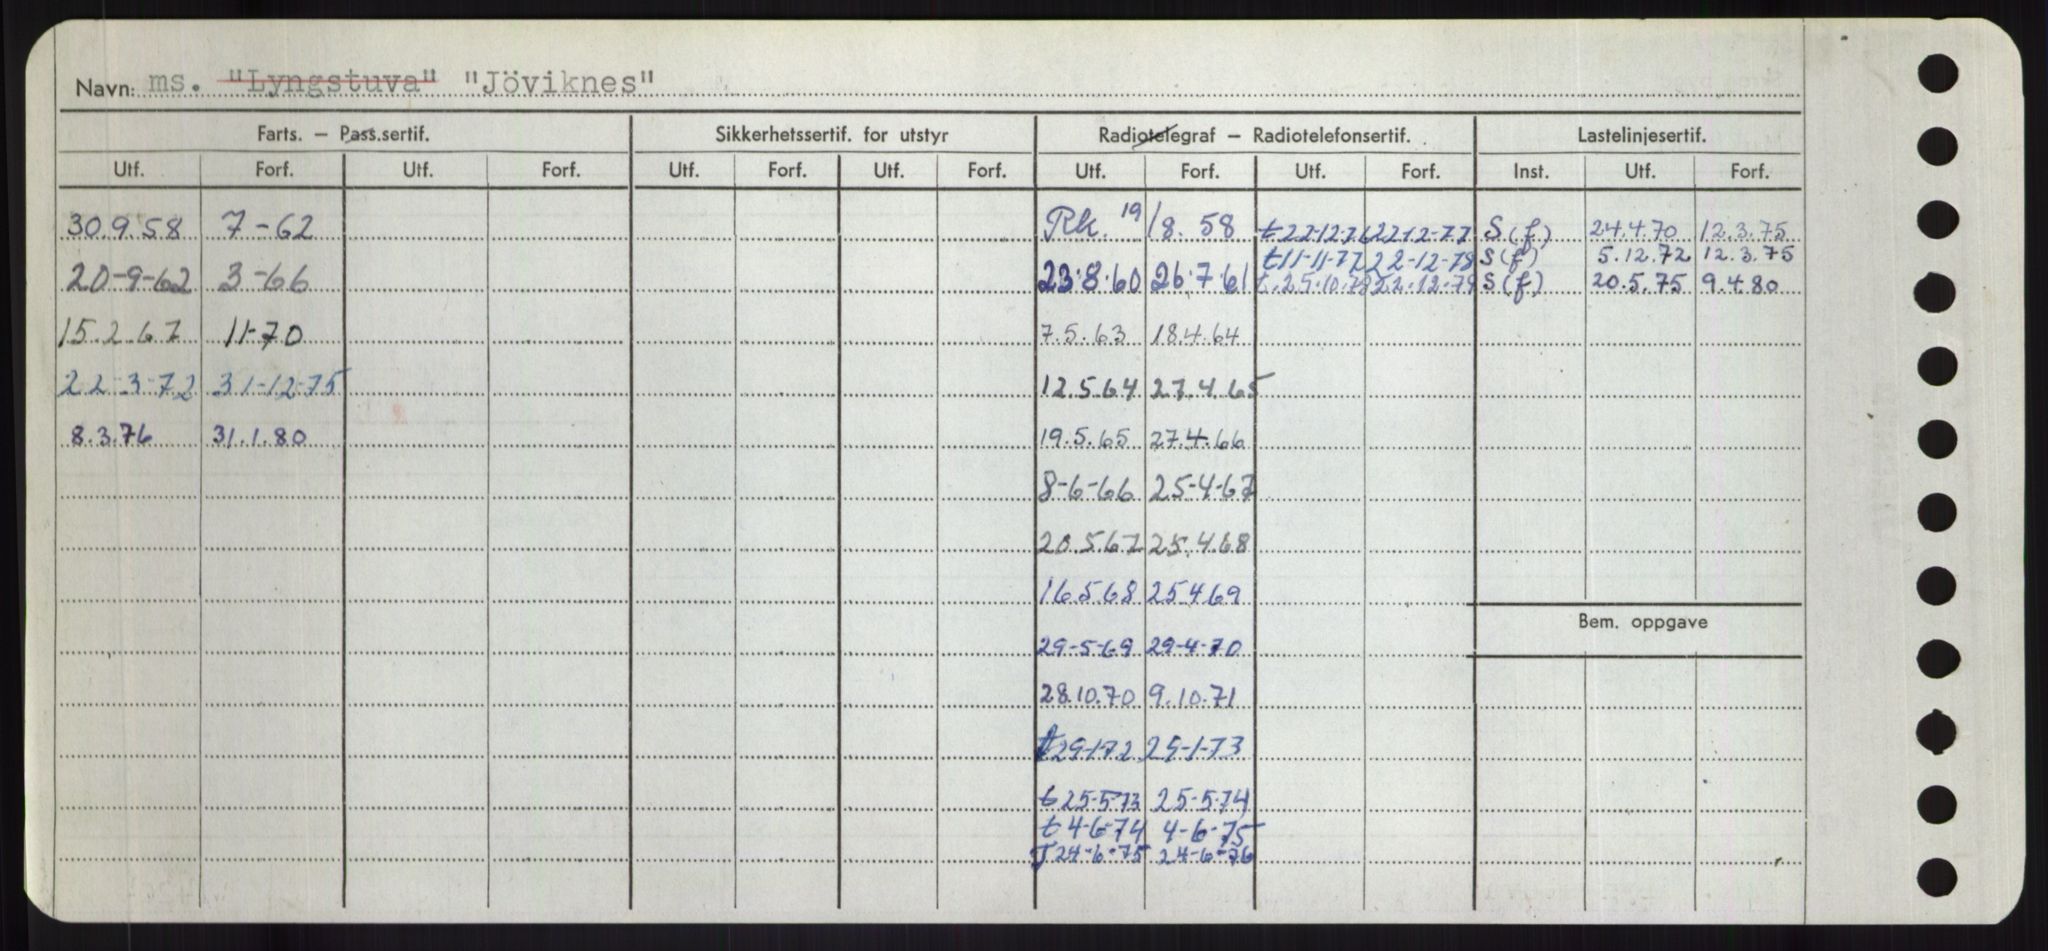 Navn: ms. "Lyngstuva" "Jöviknes"
Farts. — Pass.sertif. Sikkerhetssertif. for utstyr Radiotelegraf — Radiotelefonsertif. Lastelinjesertif.
Utf. Forf. Utf. Forf. Utf. Forf. Utf. Forf. Utf. Forf. Utf. Forf. Inst. Utf. Forf.
30.9.58 7-62 Rk. 19/8. 58 t22-12-76 22-12-77 S(f) 24.4.70 12.3.75
t11-11-77 22-12-78 S(f) 5.12.72 12.3.75
20-9-62 3-66 23.8.60 26.7.61 t.25.10.78 22.12.79 S(f) 20.5.75 9.4.80
15.2.67 11-70 7.5.63 18.4.64
22-3-72 31-12-75 12.5.64 27.4.65
8.3.76 31.1.80 19.5.65 27.4.66
8-6-66 25-4-67
20.5.67 25.4.68
16.5.68 25.4.69
Bem. oppgave
29-5-69 29-4-70
28.10.70 9.10.71
t29-1-72 29-1-73
t25-5-73 25-5-74
t4-6-74 4-6-75
T24-6-75 24-6-76